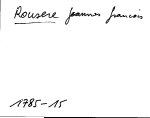 Rousere Joannes francois
1785-15